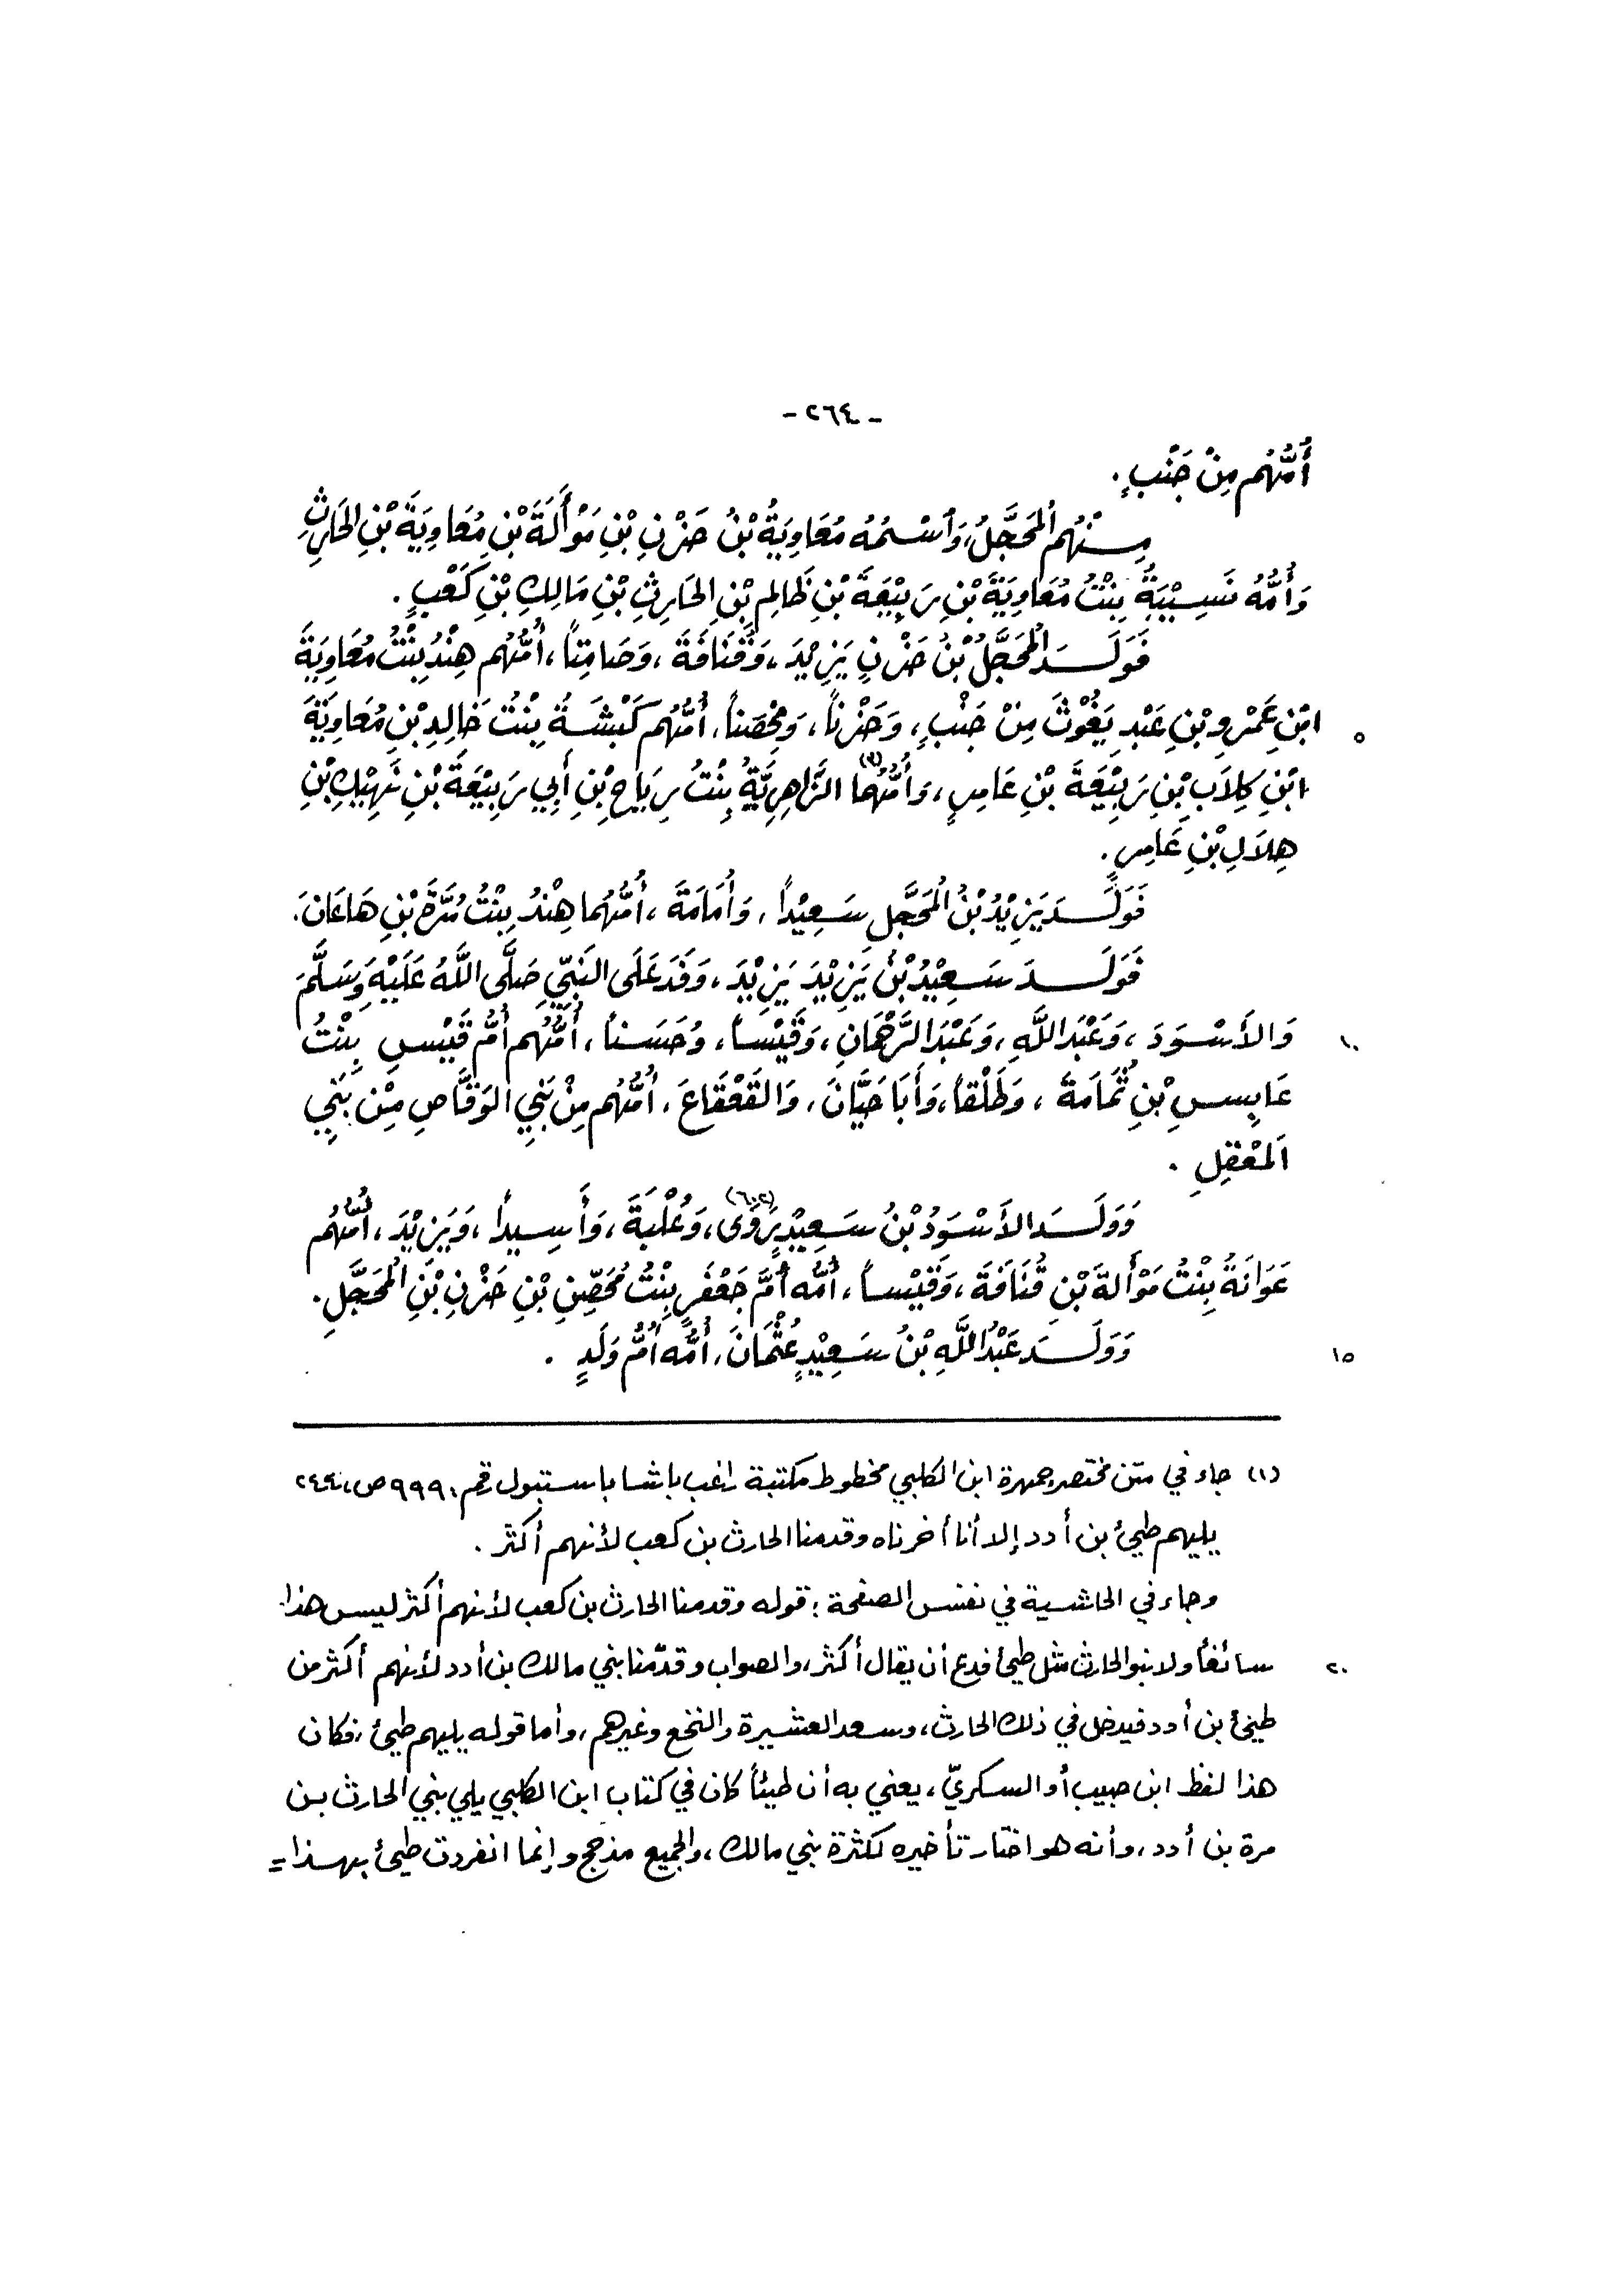 - ٢٦٤ -
أُمُّهُم مِنْ جَنْبٍ.
مِنْهُم المُحَجَّلُ، وَاسْمُهُ مُعَاوِيَةُ بْنُ حَزْنِ بْنِ مَوْأَلَةَ بْنِ مُعَاوِيَةَ بْنِ الحَارِثِ
وَأُمُّهُ نَسِيْبَةُ بِنْتُ مُعَاوِيَةَ بْنِ رَبِيْعَةَ بْنِ ظَالِمِ بْنِ الحَارِثِ بْنِ مَالِكِ بْنِ كَعْبٍ.
فَوَلَدَ المُحَجَّلُ بْنُ حَزْنٍ يَزِيْدَ، وَقُنَافَةَ، وَصَامِتاً، أُمُّهُم هِنْدُ بِنْتُ مُعَاوِيَةَ
ابْنِ عَمْرِو بْنِ عَبْدِ يَغُوْثَ مِنْ جَنْبٍ، وَحَزْناً، وَمُحْصَناً، أُمُّهُم كَبْشَةُ بِنْتُ خَالِدِ بْنِ مُعَاوِيَةَ ٥
ابْنِ كِلاَبِ بْنِ رَبِيْعَةَ بْنِ عَامِرٍ، وَأُمُّهُمَا الزَّاهِرِيَّةُ بِنْتُ رِيَاحِ بْنِ أَبِي رَبِيْعَةَ بْنِ نَهِيْكِ بْنِ
هِلاَلِ بْنِ عَامِرٍ.
فَوَلَدَ يَزِيْدُ بْنُ المُحَجَّلِ سَعِيْداً، وَأُمَامَةَ، أُمُّهُمَا هِنْدُ بِنْتُ مُرَّةَ بْنِ هَاعَانَ.
فَوَلَدَ سَعِيْدُ بْنُ يَزِيْدَ يَزِيْدَ، وَفَدَ عَلَى النَبِيِّ صَلَّى اللَّهُ عَلَيْهِ وَسَلَّمَ
وَالأَسْوَدَ، وَعَبْدَ اللَّهِ، وَعَبْدَ الرَّحْمَانِ، وَقَيْساً، وَحَسَناً، أُمُّهُم أُمُّ قَيْسِ بِنْتُ ١٠
عَابِسِ بْنِ ثُمَامَةَ، وَطَلْقاً، وَأَبَا حَيَّانَ، وَالقَعْقَاعَ، أُمُّهُم مِنْ بَنِي الوَقَّاصِ مِنْ بَنِي
المَعْقِلِ.
وَوَلَدَ الأَسْوَدُ بْنُ سَعِيْدٍ رَوَى (٦٠٢)، وَعُلْبَةَ، وَأَسِيداً، وَيَزِيْدَ، أُمُّهُم
عَوَانَةُ بِنْتُ مَوْأَلَةَ بْنِ قُنَافَةَ، وَقَيْساً، أُمُّه أُمُّ جَعْفَرٍ بِنْتُ مُحَصِّنِ بْنِ حَزْنِ بْنِ المُحَجَّلِ.
وَوَلَدَ عَبْدُ اللَّهِ بْنُ سَعِيْدٍ عُثْمَانَ، أُمُّه أُمُّ وَلَدٍ. ١٥
(١) جاء في متن مختصر جمهرة ابن الكلبي مخطوط مكتبة راغب باشا باستبول رقم، ٩٩٩ ص،
يليهم طيئ بن أدد إلا أنا أخرناه وقدمنا الحارث بن كعب لأنهم أكثر.
وجاء في الحاشية في نفس الصفحة: قوله وقدمنا الحارث بن كعب لأنهم أكثر ليس هذا
سائغاً ولا بنو الحارث مثل طيئ فدع أن يقال أكثر، والصواب وقدّمنا بني مالك بن أدد لأنهم أكثر من ٢٠
طيئ بن أدد فيدخل في ذلك الحارث، وسعد العشيرة والنخع وغيرهم، وأما قوله يليهم طيئ، فكان
هذا لفظ ابن حبيب أو السكريّ، يعني به أن طيئاً كان في كتاب ابن الكلبي يلي بني الحارث بن
مرة بن أدد، وأنه هو اختار تأخيره لكثرة بني مالك، والجميع مذحج وإنما انفردت طيئ بهذا =